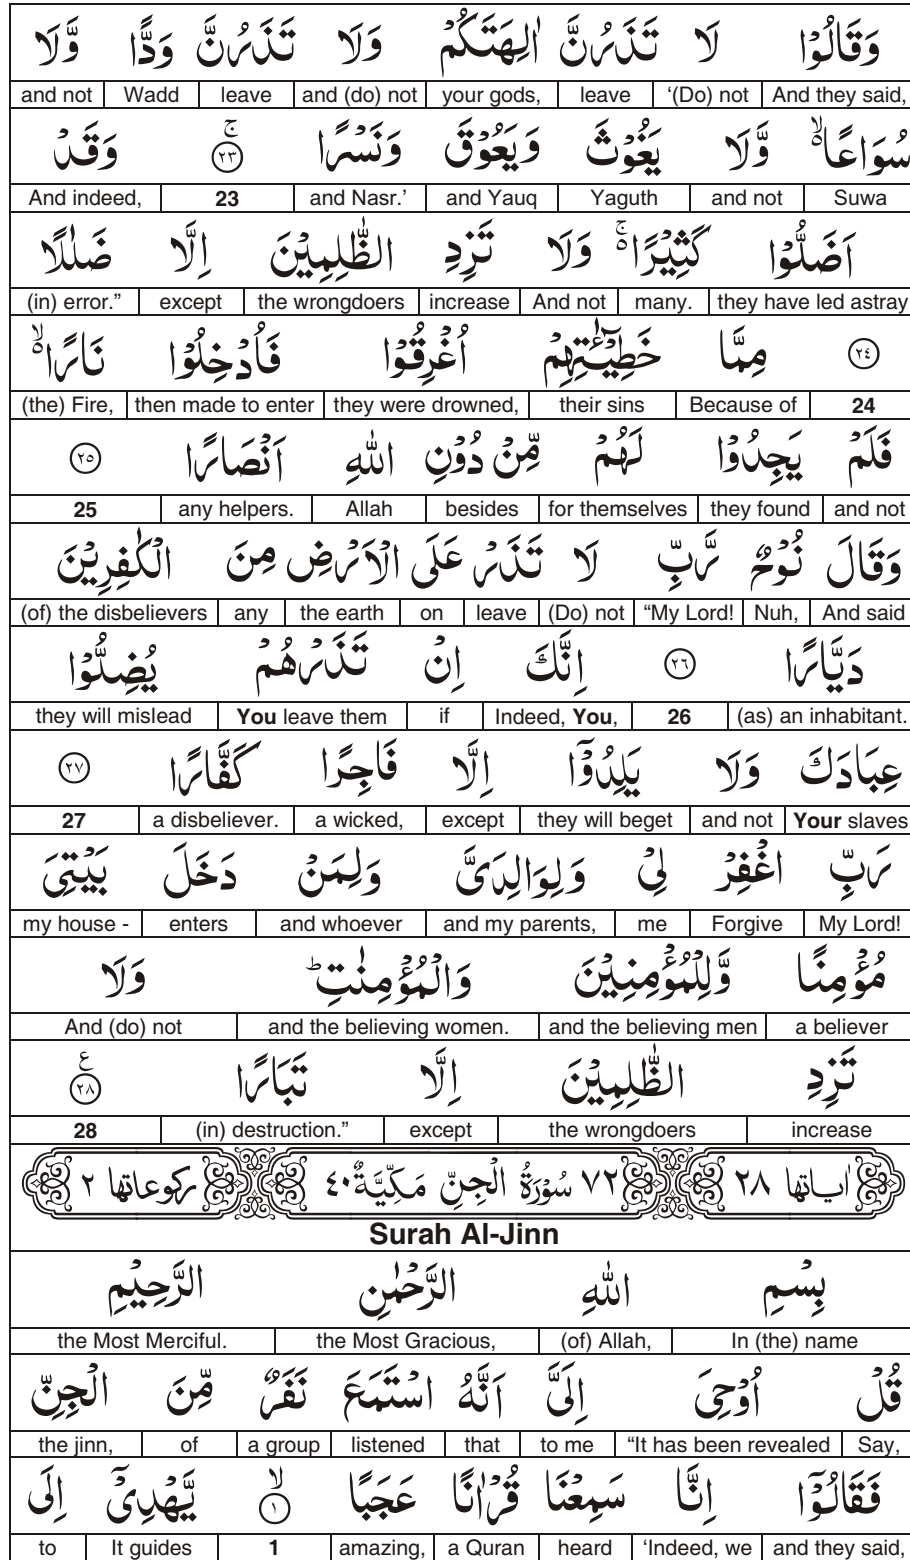 وَقَالُوۡا لَا تَذَرُنَّ اٰلِهَتَكُمۡ وَلَا تَذَرُنَّ وَدًّا وَّلَا
And they said, '(Do) not leave your gods, and (do) not leave Wadd and not
سُوَاعًا ۙ وَّلَا يَغُوۡثَ وَيَعُوۡقَ وَنَسۡرًا ۚ ﴿٢٣﴾ وَقَدۡ
Suwa and not Yaguth and Yauq and Nasr.' 23 And indeed,
اَضَلُّوۡا كَثِيۡرًا ۚ وَلَا تَزِدِ الظّٰلِمِيۡنَ اِلَّا ضَلٰلًا
they have led astray many. And not increase the wrongdoers except (in) error.”
﴿٢٤﴾ مِمَّا خَطِيۡٓـــٰٔتِهِمۡ اُغۡرِقُوۡا فَاُدۡخِلُوۡا نَارًا ۙ
24 Because of their sins they were drowned, then made to enter (the) Fire,
فَلَمۡ يَجِدُوۡا لَهُمۡ مِّنۡ دُوۡنِ اللّٰهِ اَنۡصَارًا ﴿٢٥﴾
and not they found for themselves besides Allah any helpers. 25
وَقَالَ نُوۡحٌ رَّبِّ لَا تَذَرۡ عَلَى الۡاَرۡضِ مِنَ الۡكٰفِرِيۡنَ
And said Nuh, “My Lord! (Do) not leave on the earth any (of) the disbelievers
دَيَّارًا ﴿٢٦﴾ اِنَّكَ اِنۡ تَذَرۡهُمۡ يُضِلُّوۡا
(as) an inhabitant. 26 Indeed, You, if You leave them they will mislead
عِبَادَكَ وَلَا يَلِدُوۡۤا اِلَّا فَاجِرًا كَفَّارًا ﴿٢٧﴾
Your slaves and not they will beget except a wicked, a disbeliever. 27
رَبِّ اغۡفِرۡ لِىۡ وَلِوَالِدَىَّ وَلِمَنۡ دَخَلَ بَيۡتِىَ
My Lord! Forgive me and my parents, and whoever enters my house -
مُؤۡمِنًا وَّلِلۡمُؤۡمِنِيۡنَ وَالۡمُؤۡمِنٰتِ ؕ وَلَا
a believer and the believing men and the believing women. And (do) not
تَزِدِ الظّٰلِمِيۡنَ اِلَّا تَبَارًا ﴿٢٨﴾ ع
increase the wrongdoers except (in) destruction.” 28
اٰياتها ٢٨ ٧٢ سُوۡرَةُ الۡجِنِّ مَكِّيَّةٌ ٤٠ ركوعاتها ٢
Surah Al-Jinn
بِسۡمِ اللّٰهِ الرَّحۡمٰنِ الرَّحِيۡمِ
In (the) name (of) Allah, the Most Gracious, the Most Merciful.
قُلۡ اُوۡحِىَ اِلَىَّ اَنَّهُ اسۡتَمَعَ نَفَرٌ مِّنَ الۡجِنِّ
Say, “It has been revealed to me that listened a group of the jinn,
فَقَالُوۡۤا اِنَّا سَمِعۡنَا قُرۡاٰنًا عَجَبًا ۙ ﴿١﴾ يَّهۡدِىۡۤ اِلَى
and they said, 'Indeed, we heard a Quran amazing, 1 It guides to